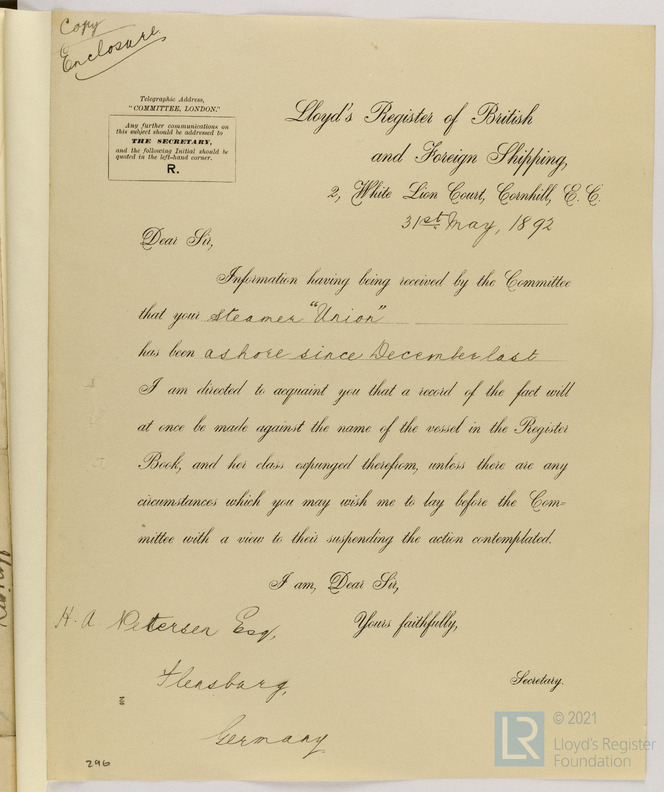 Copy
Enclosure
Telegraphic Address,
"COMMITTEE, LONDON."
Any further communications on
this subject should be addressed to
THE SECRETARY,
and the following Initial should be
quoted in the left-hand corner.
R.
Lloyd's Register of British
and Foreign Shipping,
2, White Lion Court, Cornhill, E.C.
31st May, 1892
Dear Sir,
Information having being received by the Committee
that your steamer "Union"
has been ashore since December last
I am directed to acquaint you that a record of the fact will
at once be made against the name of the vessel in the Register
Book, and her class expunged therefrom, unless there are any
circumstances which you may wish me to lay before the Com=
mittee with a view to their suspending the action contemplated.
I am, Dear Sir,
Yours faithfully,
H. A. Petersen Esq,
Flensburg,
Germany
Secretary.
296
LR
© 2021
Lloyd's Register
Foundation